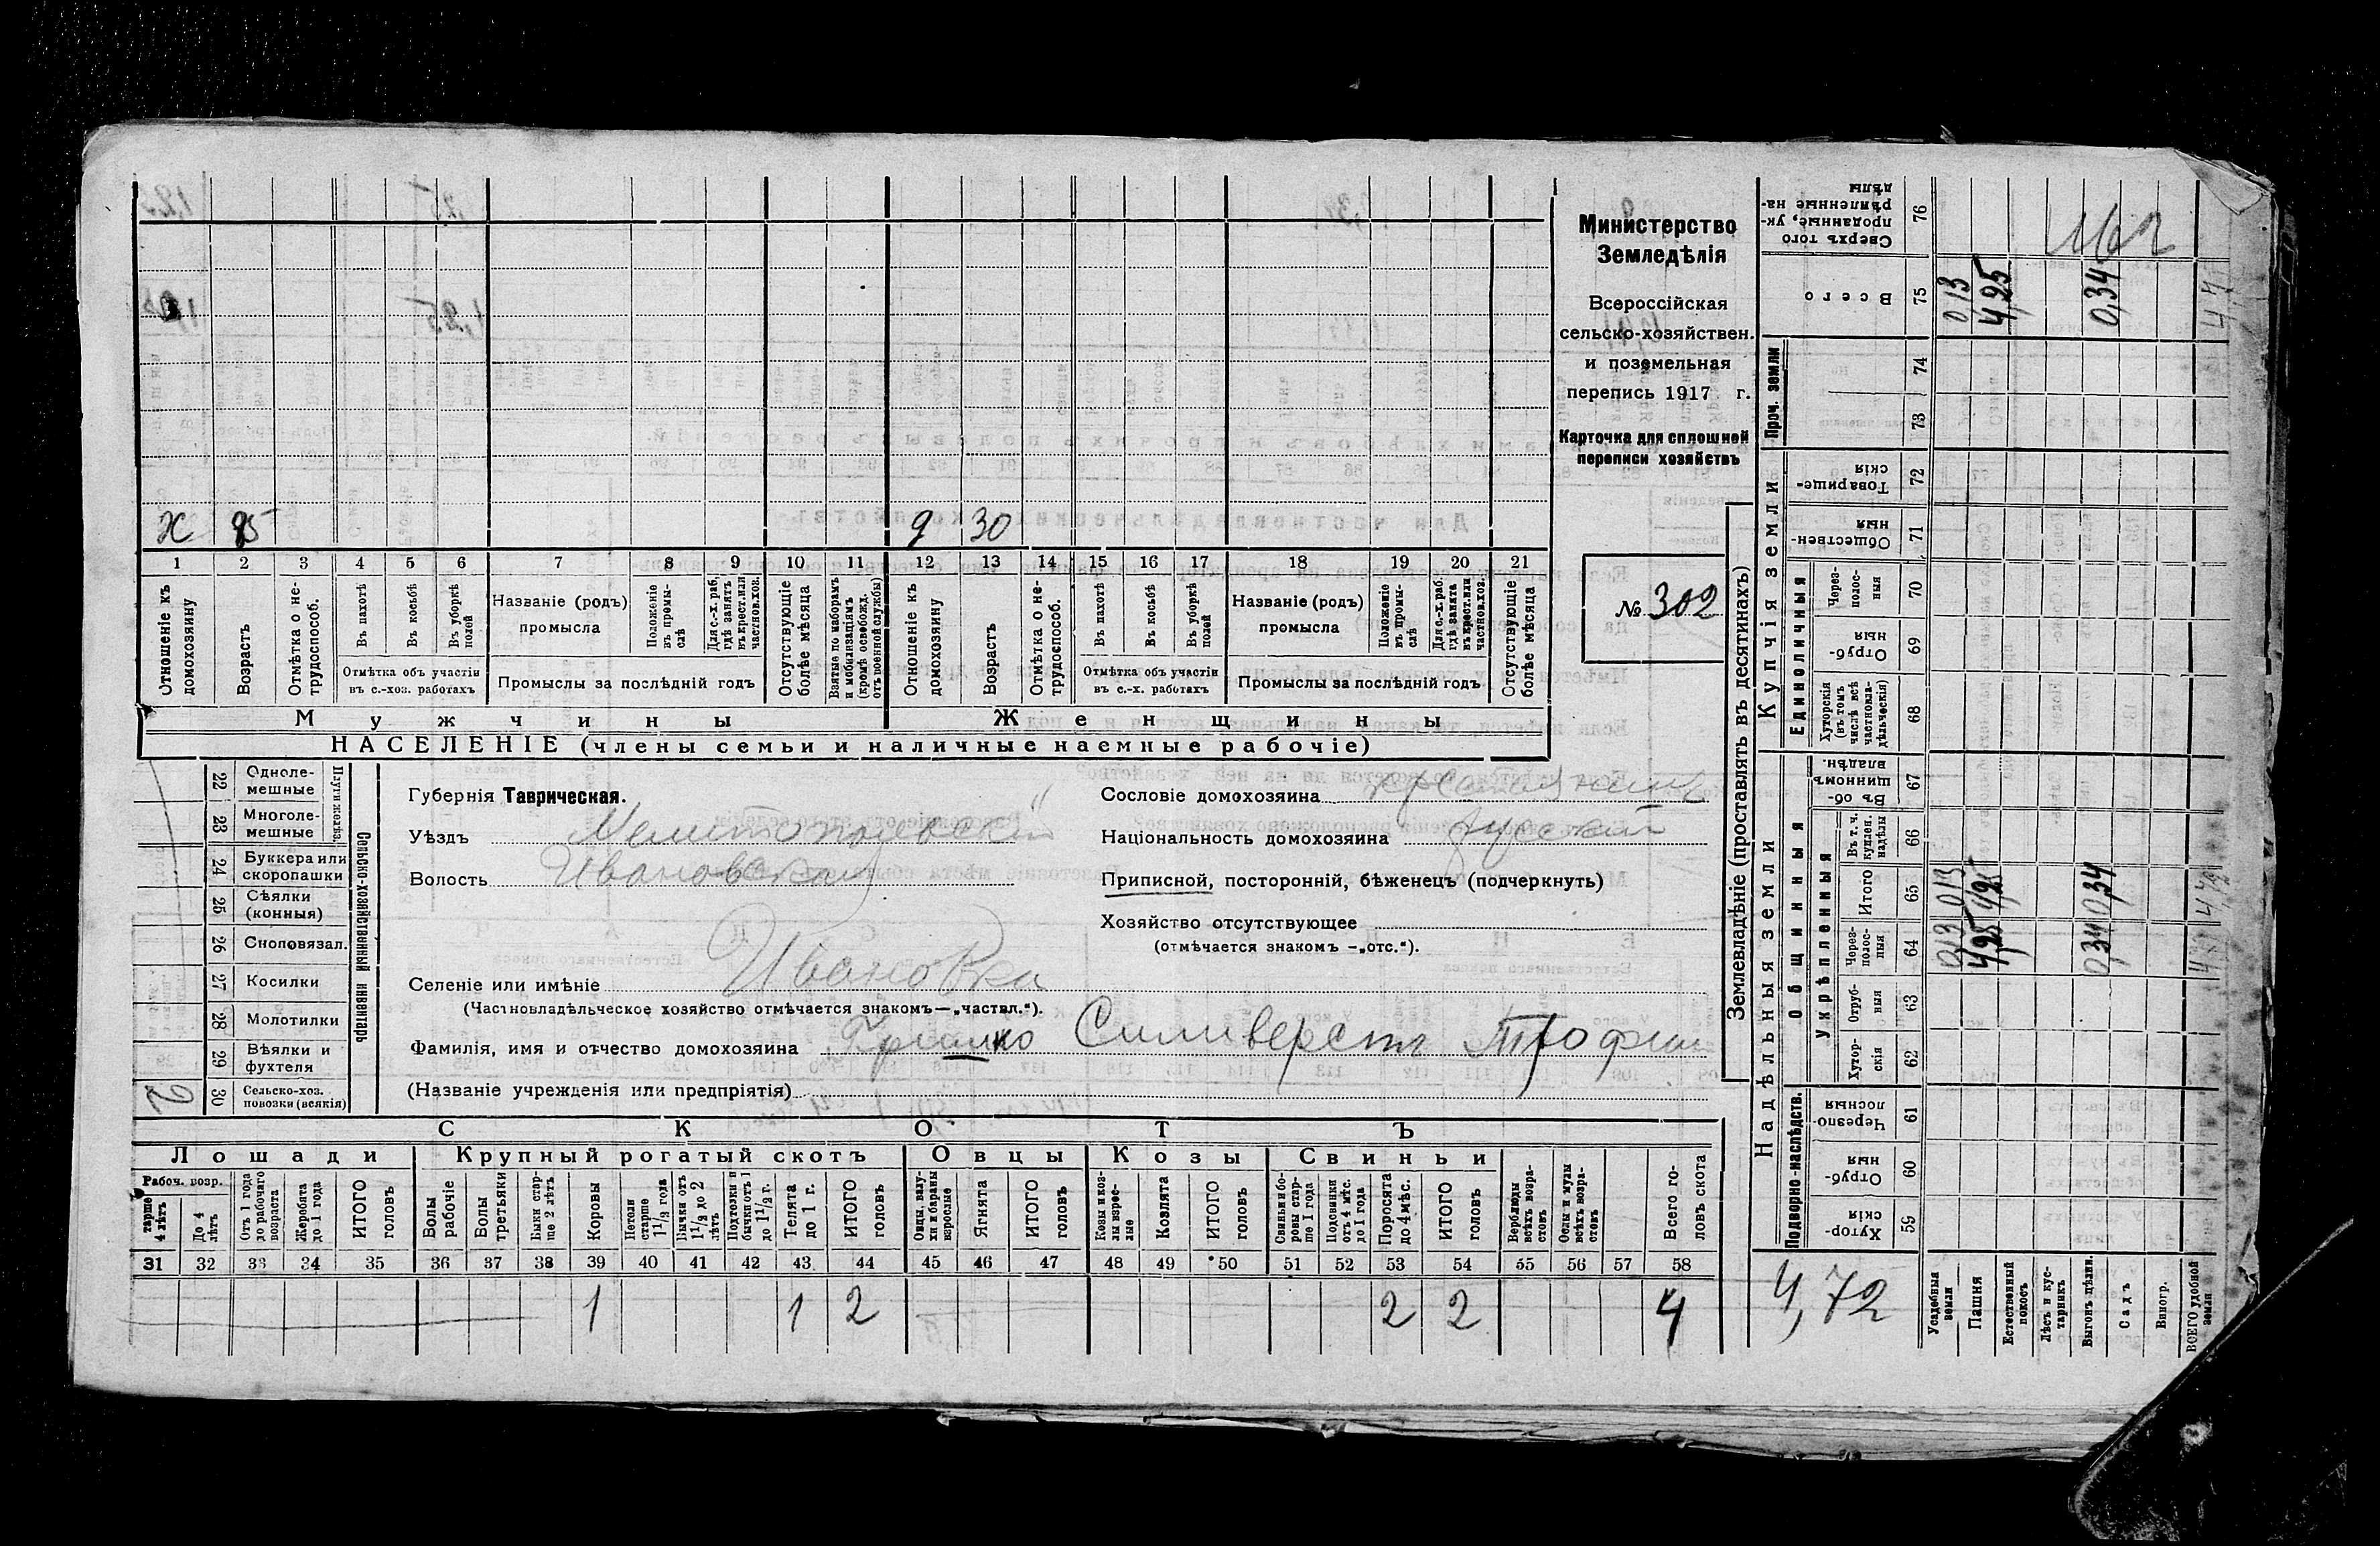 Министерство
Земледѣлія
Всероссійская
сельско-хозяйствен.
и поземельная
перепись 1917 г.
Карточка для сплошной
переписи хозяйствъ
№ 302
Х 85 9 30
1 2 3 4 5 6 7 8 9 10 11 12 13 14 15 16 17 18 19 20 21
Отношеніе къ домохозяину
Возрастъ
Отмѣтка о нетрудоспособ.
Въ пахотѣ
Въ косьбѣ
Въ уборкѣ полей
Отмѣтка объ участіи
въ с.-хоз. работахъ
Названіе (родъ)
промысла
Положеніе въ промы-слѣ
Для с.-х. раб. гдѣ занятъ въ крест. или частнов. хоз.
Промыслы за послѣдній годъ
Отсутствующіе болѣе мѣсяца
Взятые по наборамъ и мобилизаціямъ (кромѣ освобожд. отъ военной службы)
Отношеніе къ домохозяину
Возрастъ
Отмѣтка о не-трудоспособ.
Въ пахотѣ
Въ косьбѣ
Въ уборкѣ полей
Отмѣтка объ участіи
въ с.-х. работахъ
Названіе (родъ)
промысла
Положеніе въ промы-слѣ
Для с.-х. раб. гдѣ занята въ крест. или частнов. хоз.
Промыслы за послѣдній годъ
Отсутствующіе болѣе мѣсяца
Мужчины Женщины
НАСЕЛЕНІЕ (члены семьи и наличные наемные рабочіе)
Сельско-хозяйственный инвентарь
22 Одноле-мешные
23 Многоле-мешные
24 Буккера или скоропашки
25 Сѣялки (конныя)
26 Сноповязал.
27 Косилки
28 Молотилки
29 Вѣялки и фухтеля
30 Сельско-хоз. повозки (всякія) 2
Губернія Таврическая.
Уѣздъ Мелитопольскій
Волость Ивановская
Сословіе домохозяина крестьянинъ
Національность домохозяина русскій
Приписной, посторонній, бѣженецъ (подчеркнуть)
Хозяйство отсутствующее
(отмѣчается знакомъ —„отс.“).
Селеніе или имѣніе Ивановка
(Частновладѣльческое хозяйство отмѣчается знакомъ—„частвл.“).
Фамилія, имя и отчество домохозяина Гришко Силиверстъ Трофим
(Названіе учрежденія или предпріятія)
СКОТЪ
Лошади Крупный рогатый скотъ Овцы Козы Свиньи
Рабоч. возр.
тарше 4 лѣтъ
До 4 лѣтъ
Отъ 1 года до рабочаго возраста
Жеребята до 1 года
ИТОГО головъ
Волы рабочіе
Волы третьяки
Быки стар-ше 2 лѣтъ
Коровы
Нетели старше 1 1/2 года
Бычки отъ 1 1/2 до 2 лѣтъ
Подтелки и бычки отъ 1 до 1 1/2 г.
Телята до 1 г.
ИТОГО головъ
Овцы, валу-хи и бараны взрослые
Ягнята
ИТОГО головъ
Козы и коз-лы взрос-лые
Козлята
ИТОГО головъ
Свиньи и бо-ровы стар-ше 1 года
Подсвинки отъ 4 мѣс. до 1 года
Поросята до 4 мѣс.
ИТОГО головъ
Верблюды всѣхъ возра-стовъ
Ослы и мулы всѣхъ возра-стовъ
Всего го-ловъ скота
31 32 33 34 35 36 37 38 39 40 41 42 43 44 45 46 47 48 49 50 51 52 53 54 55 56 57 58
1 1 2 2 2 4
Землевладѣніе (проставлять въ десятинахъ)
Надѣльныя земли
Купчія земли
Проч. земли
Подворно-наслѣдств.
Общинныя
Укрѣпленныя
Единоличныя
Хутор-скія 59
Отруб-ныя 60
Черезпо-лосныя 61
Хутор-скія 62
Отруб-ныя 63
Через-полос-ныя 64
Итого 65
Въ т. ч. куплен. надѣлы 66
Въ об-щинномъ владѣн. 67
Хуторскія (въ томъ числѣ всѣ частновла-дѣльческія) 68
Отруб-ныя 69
Через-полос-ныя 70
Обществен-ныя 71
Товарище-скія 72
73
74
Всего 75
Сверхъ того проданные, ук-рѣпленные на-дѣлы 76
4,72
Усадебныя земли 0,13 0,13 0,13
Пашня 4,25 4,25 4,25
Естественный покосъ
Лѣсъ и кус-тарникъ
Выгонъ цѣлин. 0,34 0,34 0,34
Садъ
Виногр.
ВСЕГО удобной земли